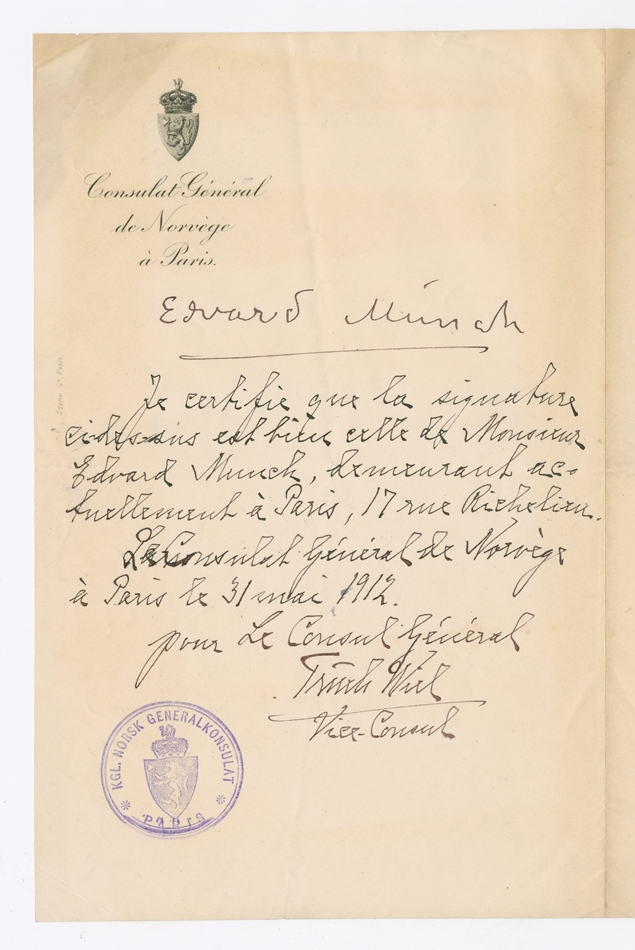 Consulat Général
de Norvège
à Paris.
Edvard Munch
Je certifie que la signature
ci-dessus est bien celle de Monsieur
Edvard Munch, demeurant ac-
tuellement à Paris, 17 rue Richelieu.
Le Consulat Général de Norvège
à Paris le 31 mai 1912.
pour Le Consul Général
Vice-Consul
KGL. NORSK GENERALKONSULAT
PARIS